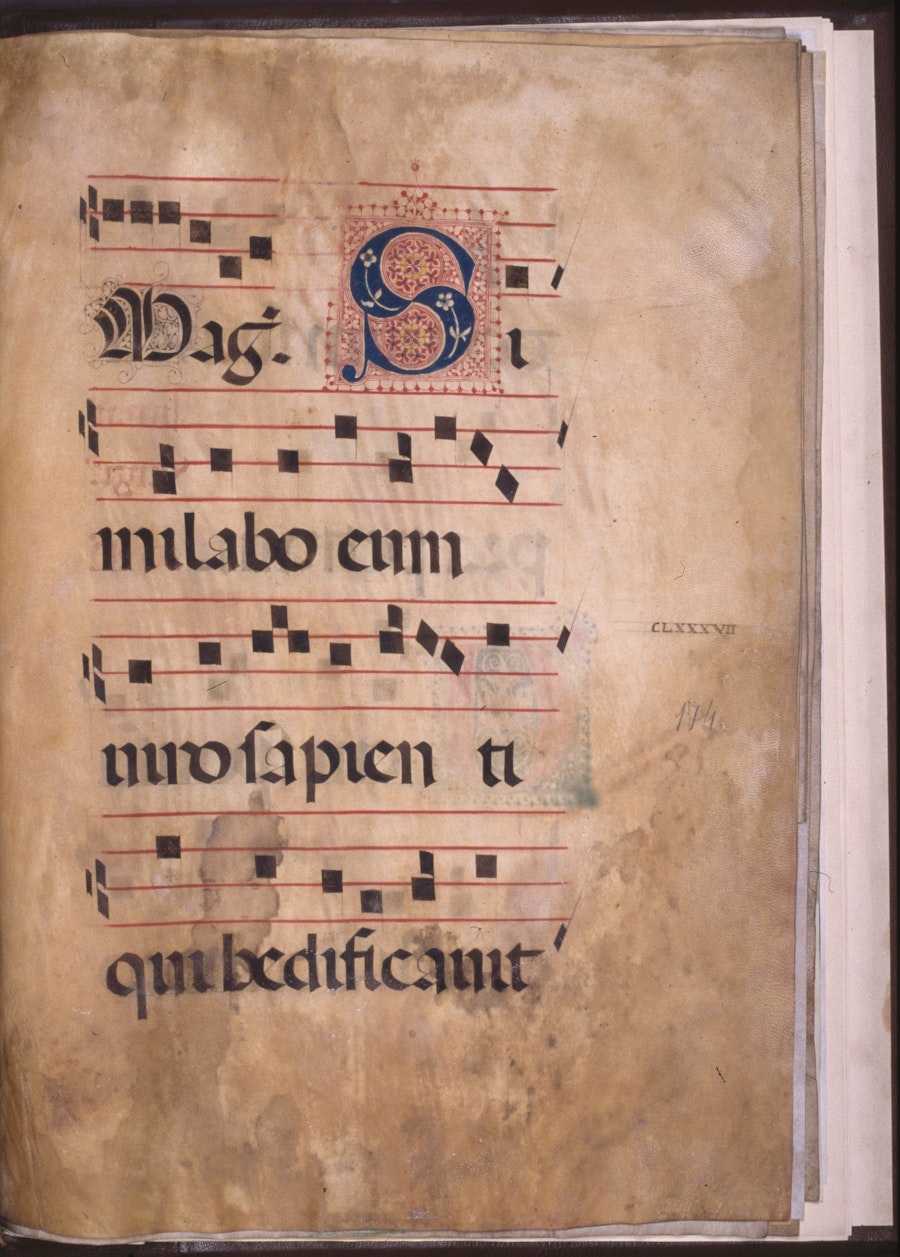 Mag. Si
milabo eum
uiro sapien ti
qui hedificauit
CLXXXVII
174